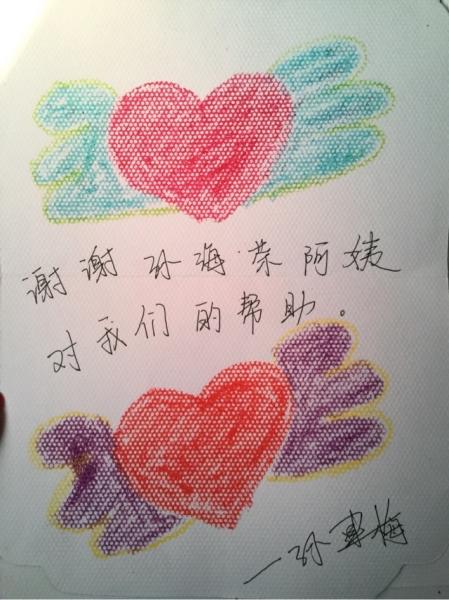 谢谢孙海荣阿姨
对我们的帮助。
—孙梅